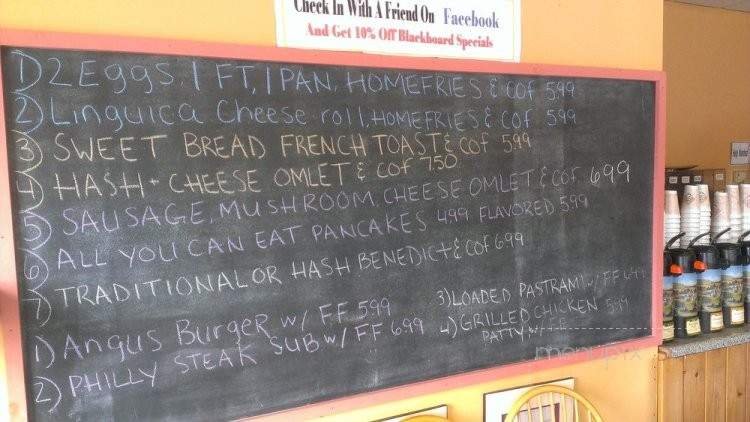 Check In With A Friend On Facebook
And Get 10% Off Blackboard Specials
1) 2 Eggs, 1 FT, 1 PAN, HOMEFRIES & COF 599
2) Linguica Cheese roll, HOMEFRIES & COF 599
3) SWEET BREAD FRENCH TOAST & COF 599
4) HASH + CHEESE OMLET & COF 750
5) SAUSAGE, MUSHROOM, CHEESE OMLET & COF 699
6) ALL YOU CAN EAT PANCAKES 499 FLAVORED 599
7) TRADITIONAL OR HASH BENEDICT & COF 699
1) Angus Burger w/ FF 599
2) PHILLY STEAK SUB w/ FF 699
3) LOADED PASTRAMI w/ FF 699
4) GRILLED CHICKEN 599
PATTY w/ FF
Help Wanted